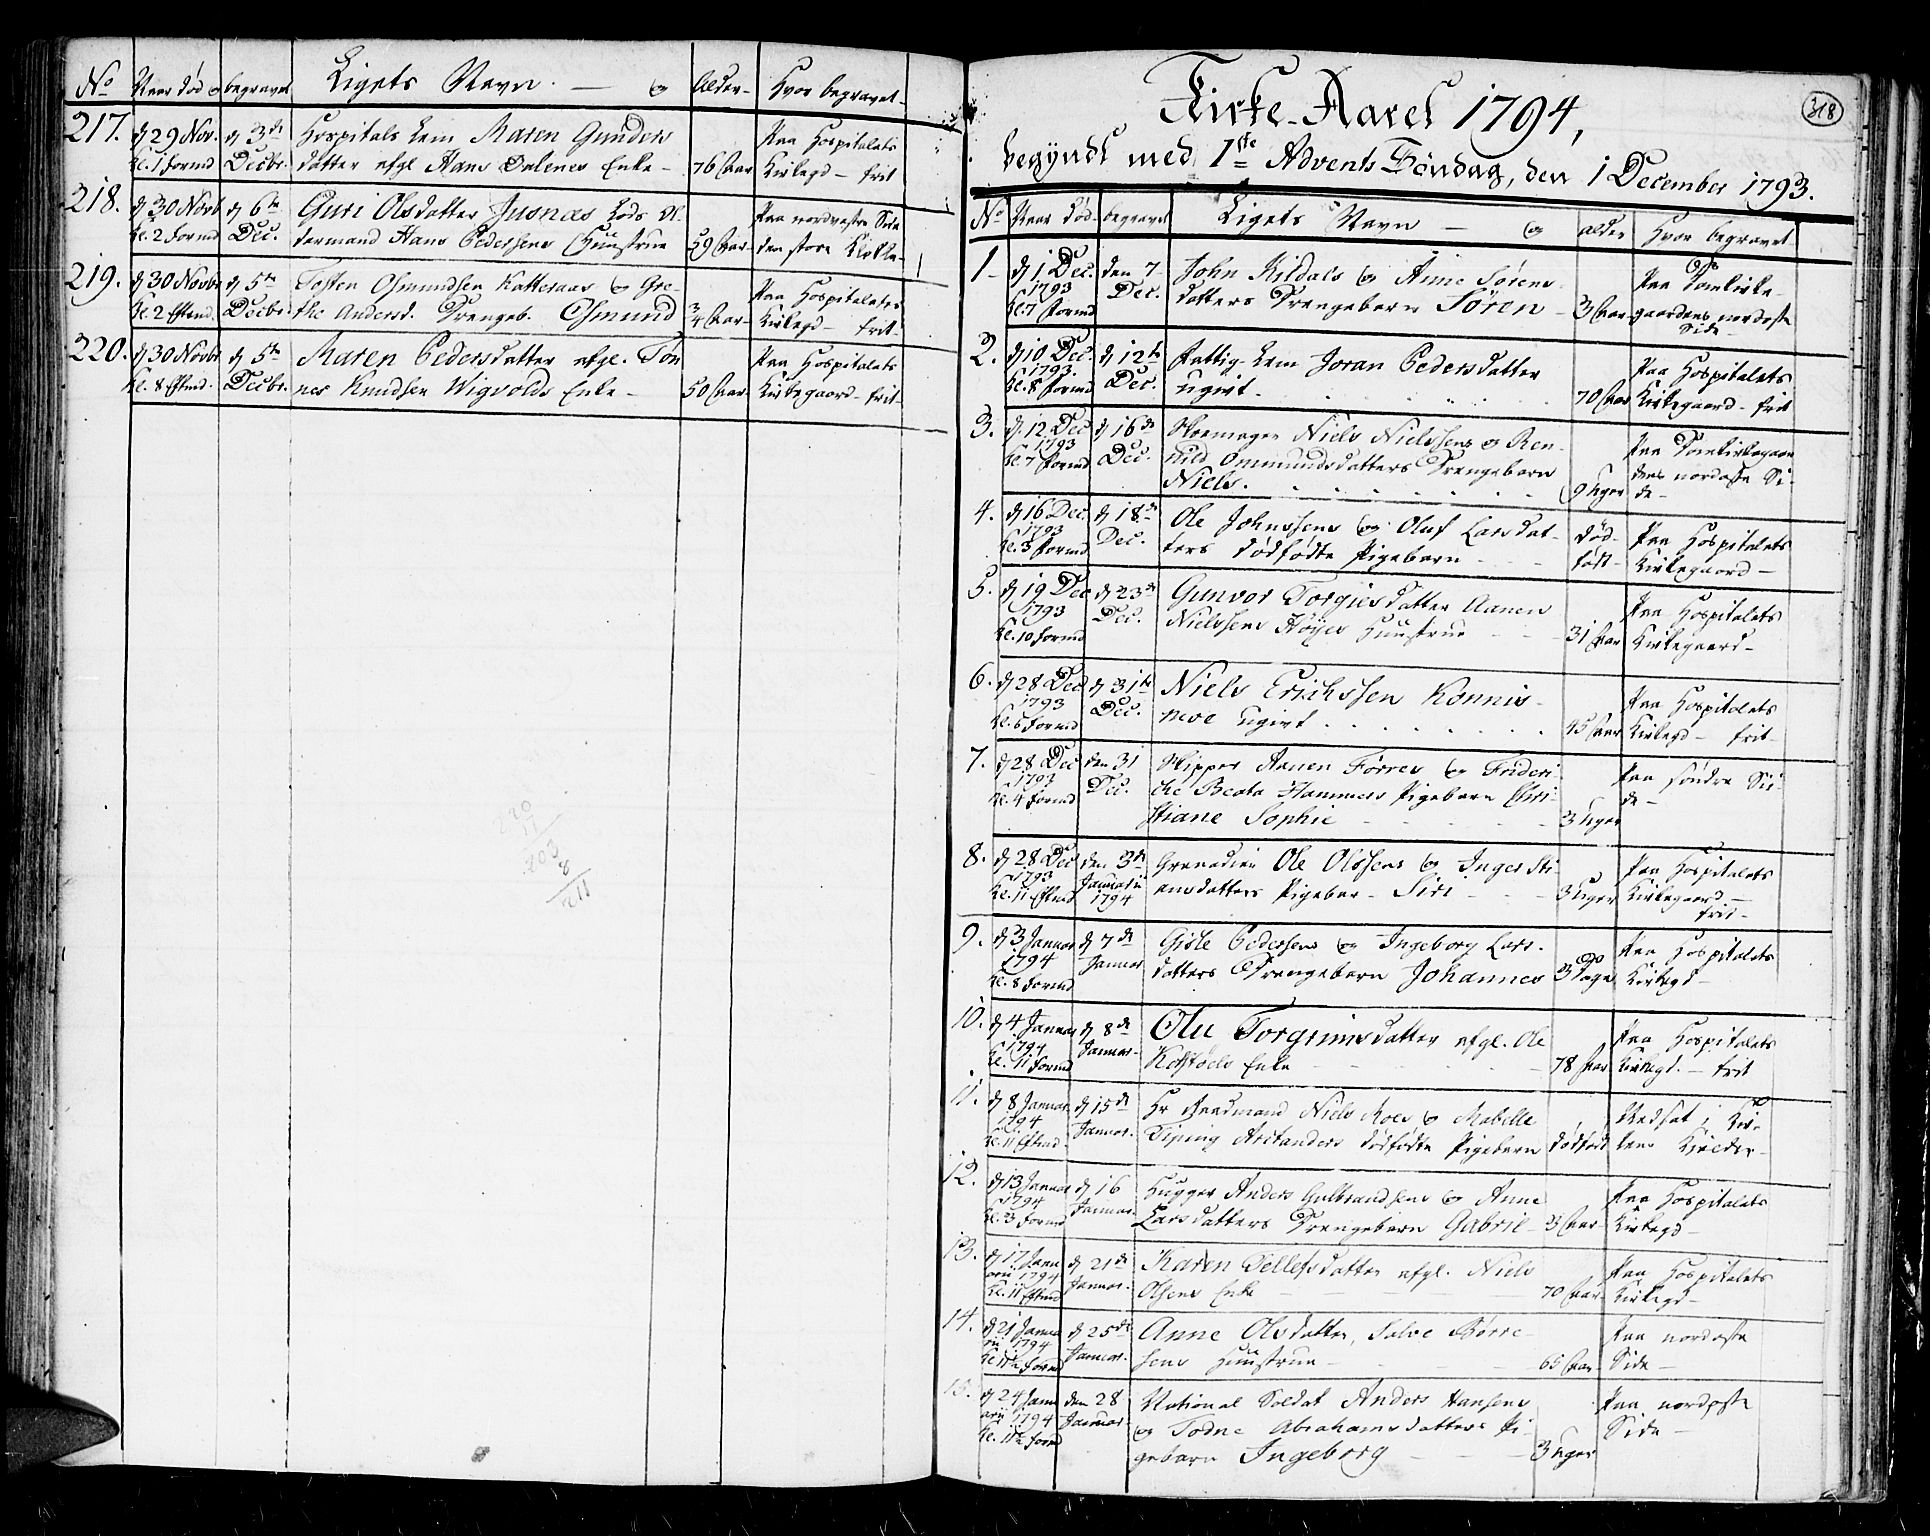 No Naar død og begravet Ligets Navn — og Alder Hvor begravet
217. d 29 Nov. kl. 1 Formd d 3de Decbr. Hospitals Lem Maren Gunders
datter afgl Hans Enke — 76 Aar Paa Hospitalets Kirkegd — frit
218. d 30 Novb kl. 2 Formd d 6te Dec. Guri Olsdatter Lods Ol
dermand Hans Pedersens Huustrue 59 Aar Paa nordveste Side den store Kirke
219. d 30 Novbr kl. 2 Eftmd. d 5te Decbr. Tosten Osmundsen Katteraas og Gre-
the Andersd. Drengeb. Osmund 3/4 Aar Paa Hospitalets Kirkegd — frit
220. d 30 Novbr kl. 8 Eftmd. d 5te Decbr. Maren Pedersdatter afgl. Tøn
nes Knudsen Wigvolds Enke — 50 Aar Paa Hospitalets Kirkegaard — frit
220
17
203
8
211
318
Kirke-Aaret 1794,
begyndt med 1ste Advents Søndag, den 1 December 1793.
No Naar død begravet Ligets Navn — og alder Hvor begravet
1 d 1 Dec. 1793 kl. 7 Formd den 7 Dec. John Kildals og Anne Sørens-
datters Drengebarn Søren 3 Aar Paa Domkirke-
gaardens nordoste Side
2. d 10 Dec. 1793. kl. 8 Formd d 12te Dec. Fattig Lem Joran Pedersdatter
ugivt 70 Aar Paa Hospitalets Kirkegaard frit
3. d. 12 Dec 1793 kl. 7 Formd d 16de Dec. Skoemager Niels Nielssens og Ren-
nild Ommundsdatters Drengebarn
Niels. 9 Uger Paa Domkirkegaar
dens nordoste Si-
de
4. d 16 Dec. 1793 kl. 3 Formd d 18de Dec. Ole Johnssens og Oluf Larsdat-
ters dødfødte Pigebarn død-
født Paa Hospitalets Kirkegaard —
5. d 19 Dec 1793 kl. 10 Formd d 23de Dec. Gunvor Torgiersdatter Aanen
Nielssens Høyes Huustrue 31 Aar Paa Hospitalets Kirkegaard —
6. d 28 Dec 1793 kl. 6 Formd d 31te Dec. Niels Erichssen Konnis-
neve ugivt 45 Aar Paa Hospitalets Kirkegd — frit
7. d 28 Dec 1793 kl. 4 Formd den 31 Dec. Skipper Aanen Førres og Frideri-
che Beata Hammers Pigebarn Chri-
stiane Sophie 3 Uger Paa søndre Si-
de
8. d 28 Dec 1793 kl. 11 Eftmd den 3de Januarii 1794 Grenadier Ole Olssens og Inger Sti-
ansdatters Pigebar — Siri 3 Uger Paa Hospitalets Kirkegaard — frit
9. d 3 Januar 1794 kl. 8 Formd d 7de Januar Gisle Pedersens og Ingeborg Lars-
datters Drengebarn Johannes 3 Dage Paa Hospitalets Kirkegd —
10. d 4 Januar 1794 kl. 11 Formd d 8de Januar. Olu Torgrimsdatter afgl. Ole
Enke 78 Aar Paa Hospitalets Kirkegd. — frit
11. d 8 Januar 1794 kl. 11 Eftmd. d 15de Januar. Hr Raadmand Niels Moes og Mabelle
Tiping Arctanders dødfødte Pigebarn dødfødt Nedsat i Kir-
kens Kielder
12. d 13 Januar 1794 kl. 3 Formd d 16 Januar. Hugger Anders Gulbrandsens og Anne
Larsdatters Drengebarn Gabriel 3 Aar Paa Hospitalets Kirkegd —
13. d 17 Janu
arii 1794 kl. 11 Eftmd d 21de Januar. Karen Tellefsdatter afgl. Niels
Olsens Enke 70 Aar Paa Hospitalets Kirkegd —
14. d 21 Janua
rii 1794 Formd d 25de Januar. Anne Olsdatter, Salve Børre-
sens Huustrue 65 Aar Paa nordoste
Side —
15. d 24 Janu
arii 1794 Formd den 28 Januar National Soldat Anders Hansens
og Todne Abrahamsdatters Pi-
gebarn Ingeborg 3 Uger Paa nordoste
Side —